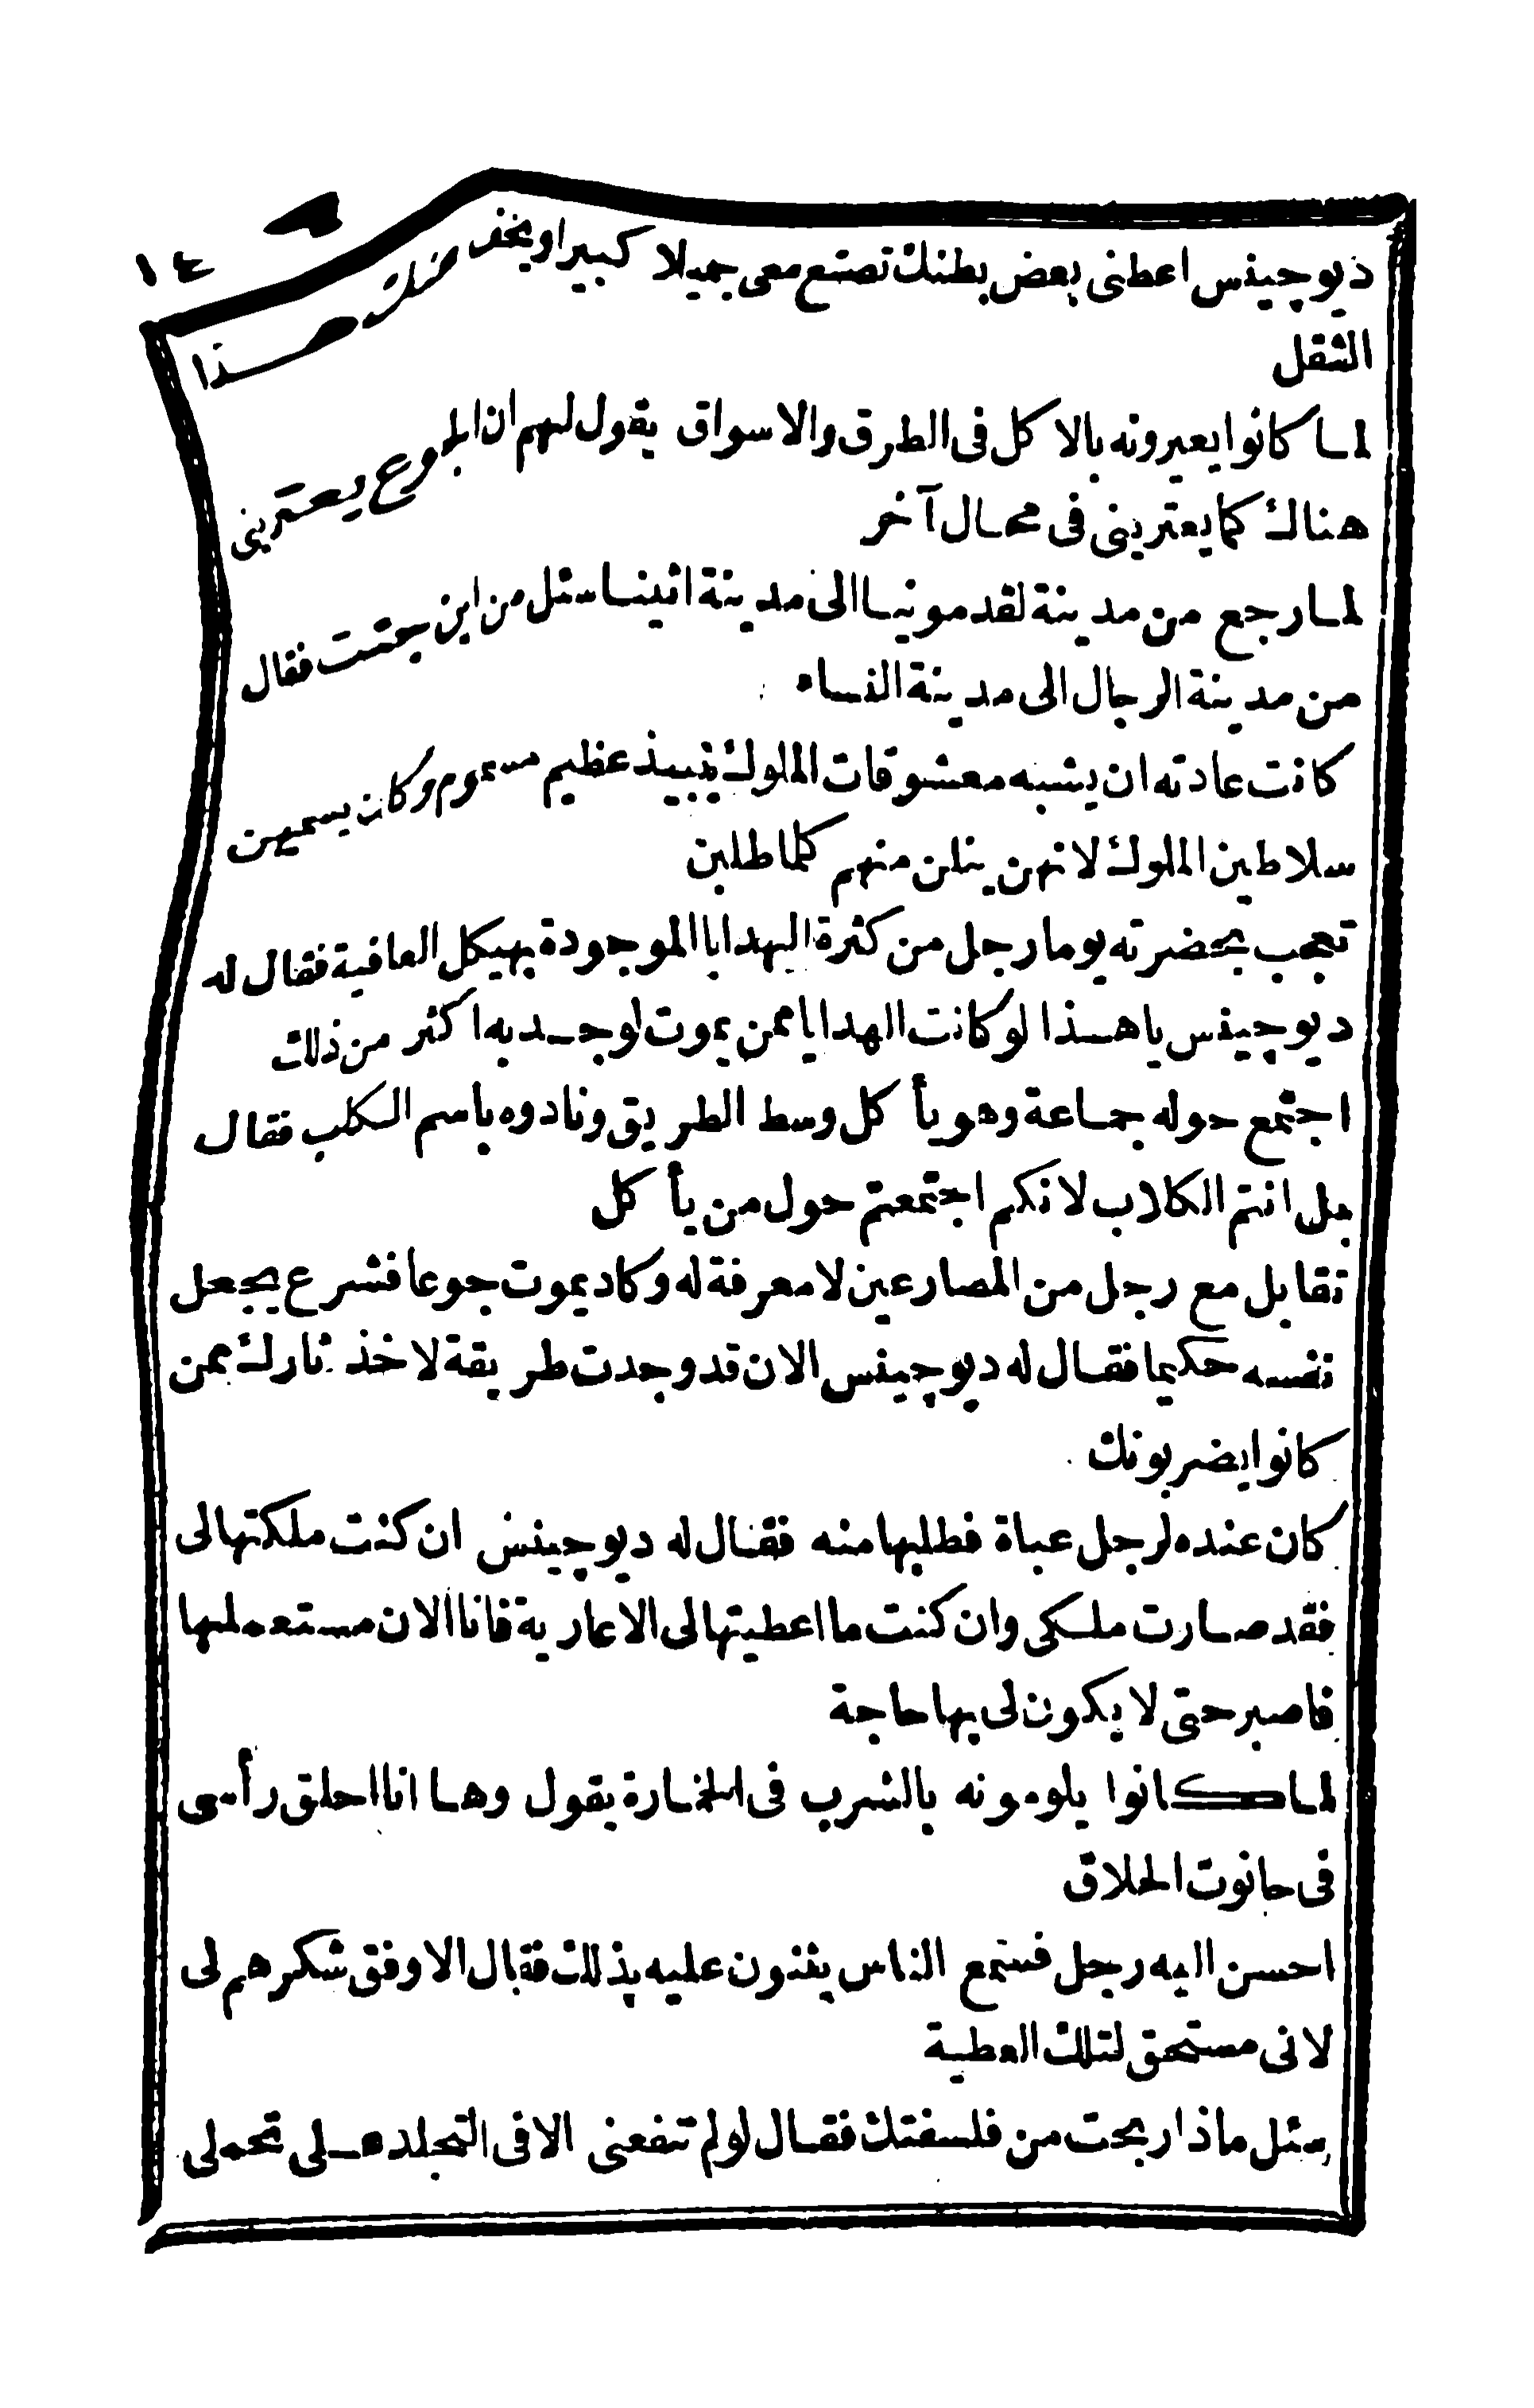 ١٤
ديوجينس اعطنى بعض بطنك تصنع معى جميلا كبيرا ويخف عنك هـذا
الثقل
لمـا كانوا يعيرونه بالاكل فى الطرق والاسواق يقول لهم ان الجوع يعترينى
هناك كما يعترينى فى محـال آخر
لمـا رجع من مدينة لقدمونيـا الى مدينة اثينـا سئل من اين جئت فقال
من مدينة الرجال الى مدينة النساء
كانت عادته ان يشبه معشوقات الملوك بنبيذ عظيم مسموم وكان يسميهن
سلاطين الملوك لانهن ينلن منهم كلما طلبن
تعجب بحضرته يوما رجل من كثرة الهدايا الموجودة بهيكل العافية فقال له
ديوجينس يا هـذا لو كانت الهدايا ممن يموت لوجـد به اكثر من ذلك
اجتمع حوله جمـاعة وهو يأكل وسط الطريق ونادوه باسم الكلب فقال
بل انتم الكلاب لانكم اجتمعتم حول من يأكل
تقابل مع رجل من المصارعين لا معرفة له وكاد يموت جوعا فشرع يجعل
نفسه حكيما فقـال له ديوجينس الان قد وجدت طريقة لاخذ ثارك ممن
كانوا يضربونك
كان عنده لرجل عباة فطلبها منه فقـال له ديوجينس ان كنت ملكتها لى
فقد صـارت ملـكى وان كنت ما اعطيتها لى الا عارية فانا الان مستعملها
فاصبر حتى لا يكون لى بها حاجة
لمـا كانوا يلومونه بالشرب فى الخمـارة يقول وهـا انا احلق رأسى
فى حانوت الحلاق
احسن اليه رجل فسمع الناس يثنون عليه بذلك فقال الاوفق شكرهم لى
لانى مستحق لتلك العطية
سئل ماذا ربحت من فلسفتك فقـال لو لم تنفعنى الا فى التجلد عـلى تحملى